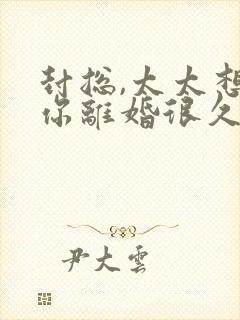 封总,太太想
你離婚很久
尹大雲